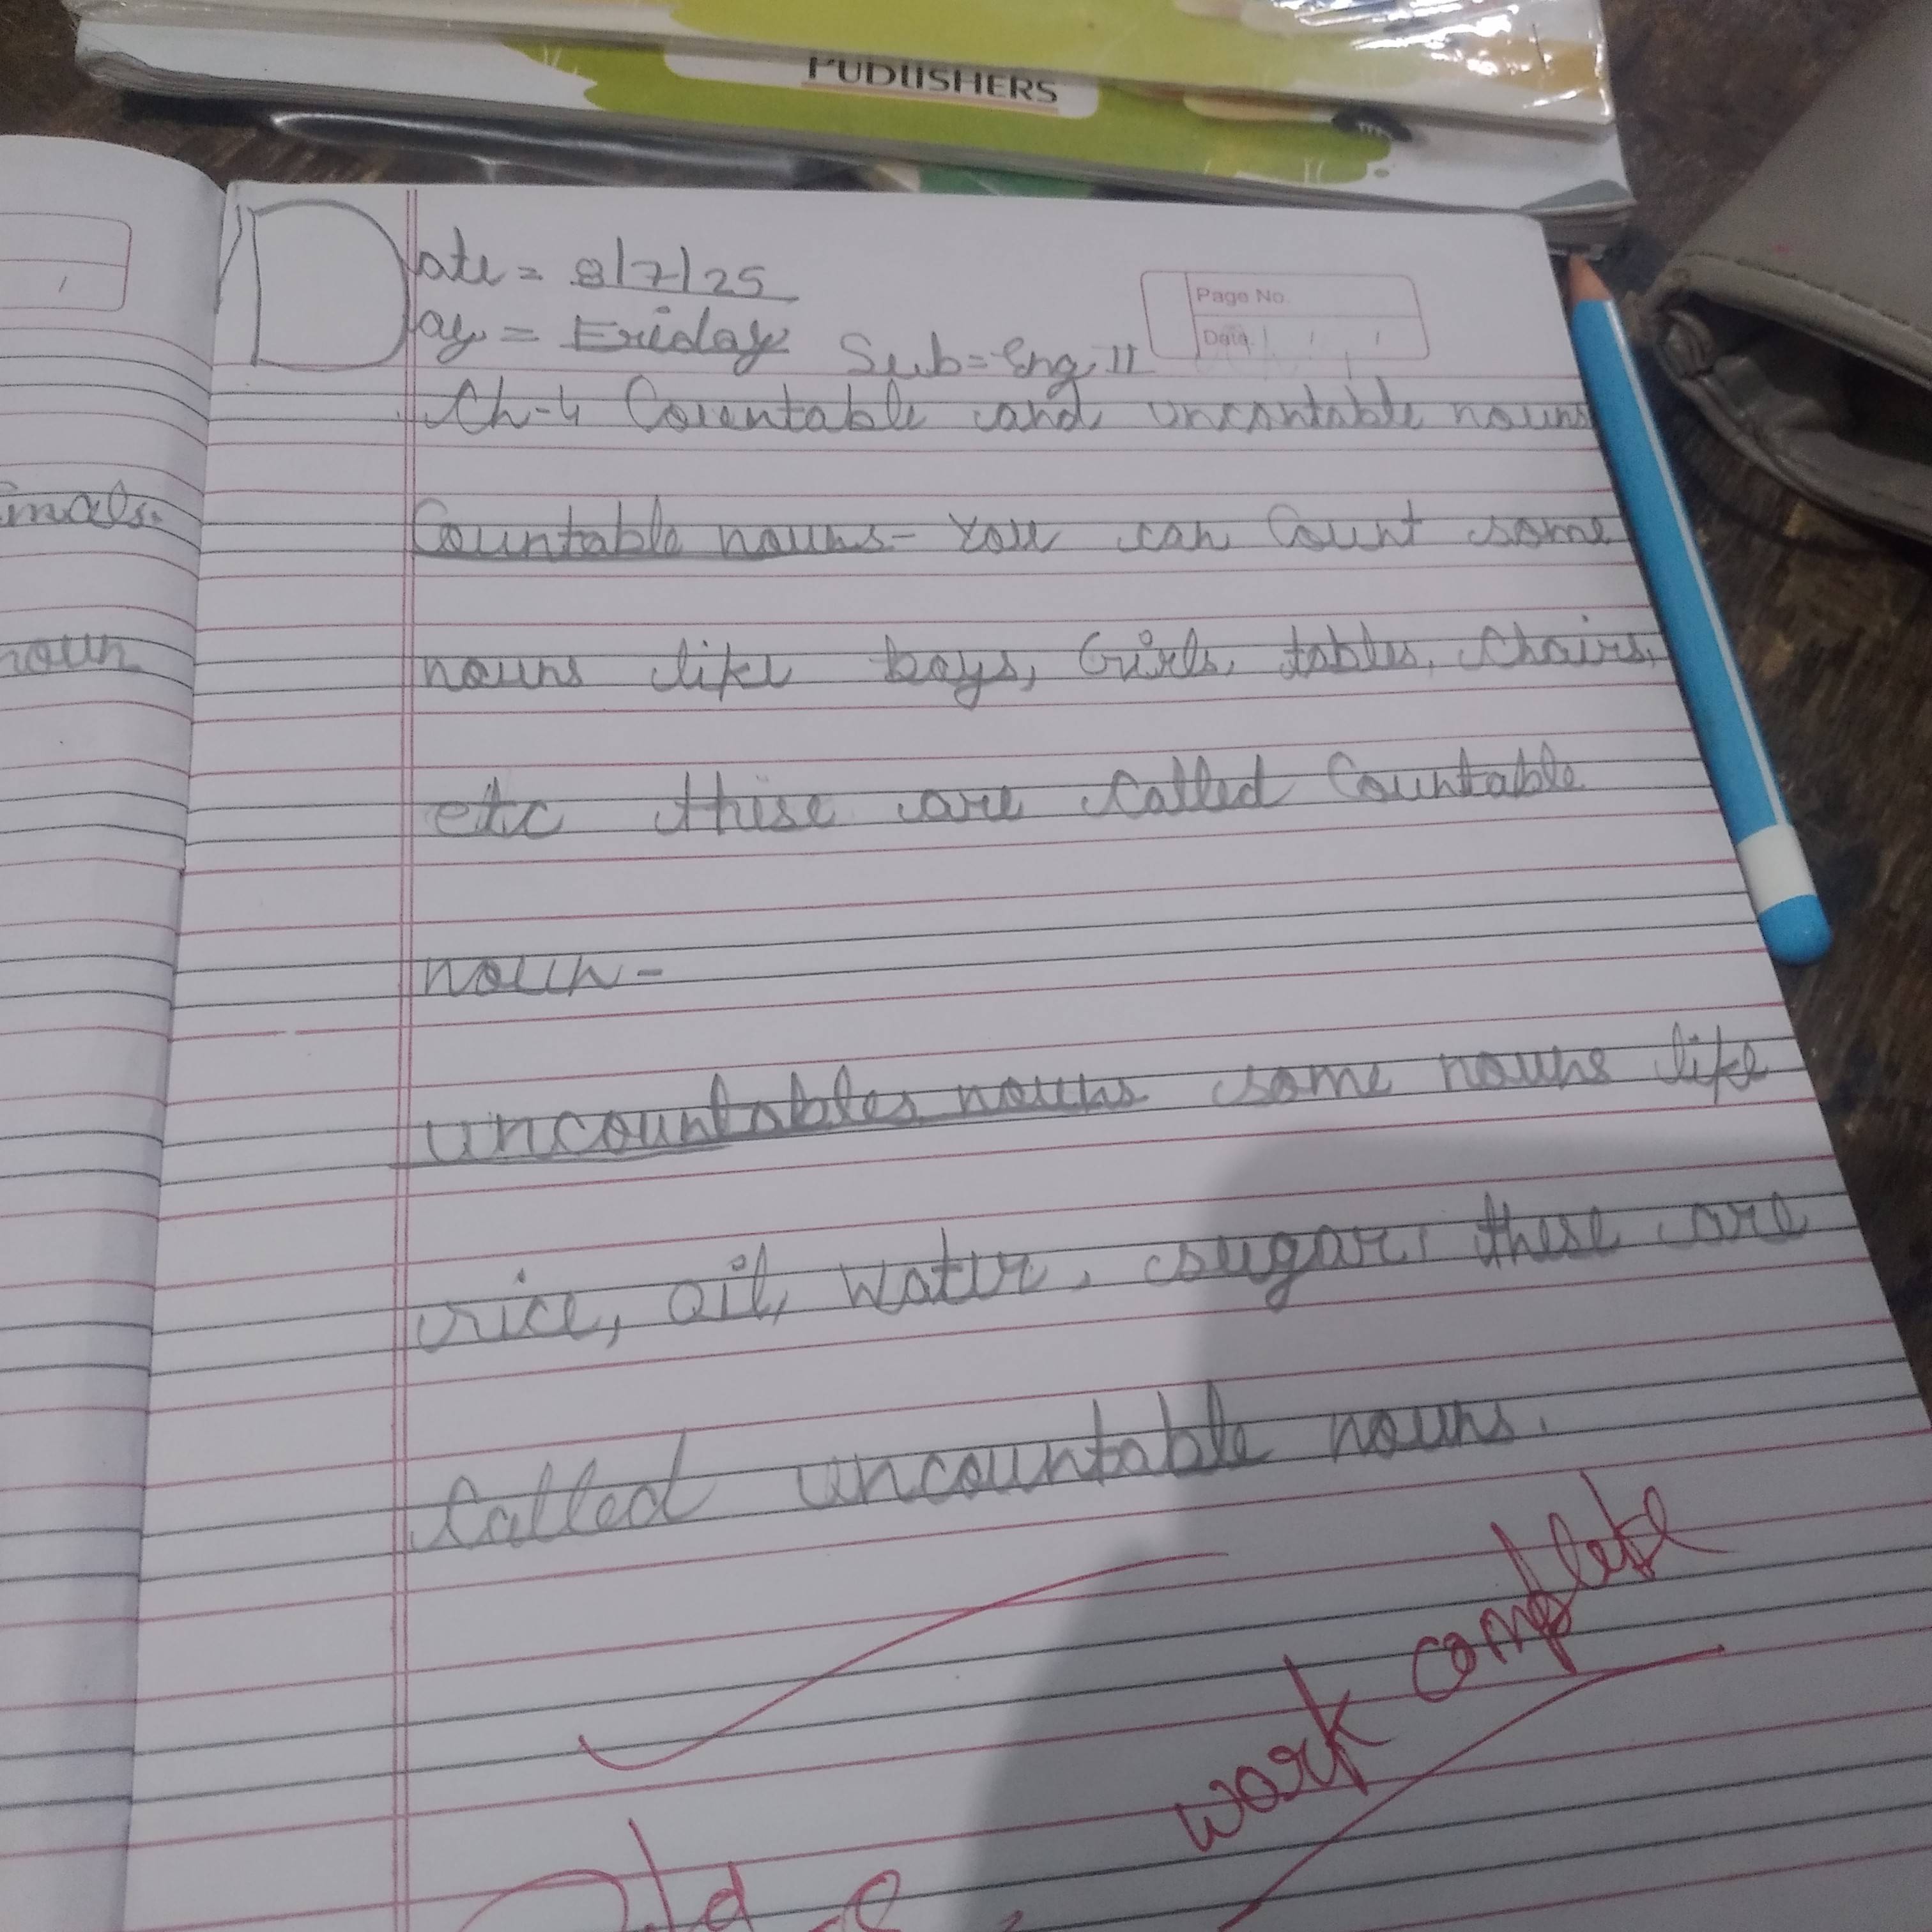 PUBLISHERS
Date = 8/7/25
Day = Friday Sub = Eng II
Page No.
Date / /
Ch-4 Countable and uncontable nouns
imals.
Countable nouns- You can Count some
noun
nouns like boys, Girls, tables, Chairs,
etc these are Called Countable
noun-
uncountables nouns some nouns like
rice, oil, water, sugar, these are
Called uncountable nouns.
work complete